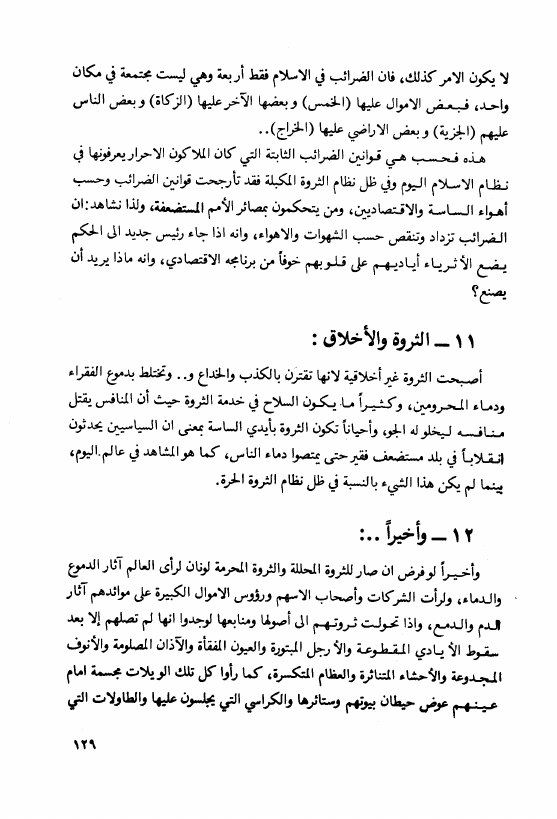 لا يكون الامر كذلك، فان الضرائب في الاسلام فقط أربعة وهي ليست مجتمعة في مكان
واحد، فبعض الاموال عليها (الخمس) وبعضها الآخر عليها (الزكاة) وبعض الناس
عليهم (الجزية) وبعض الاراضي عليها (الخراج)..
هذه فحسب هي قوانين الضرائب الثابتة التي كان الملاكون الاحرار يعرفونها في
نظام الاسلام اليوم وفي ظل نظام الثروة المكبلة فقد تأرجحت قوانين الضرائب وحسب
أهواء الساسة والاقتصاديين، ومن يتحكمون بمصائر الأمم المستضعفة، ولذا نشاهد: ان
الضرائب تزداد وتنقص حسب الشهوات والاهواء، وانه اذا جاء رئيس جديد الى الحكم
يضع الأثرياء أياديهم على قلوبهم خوفاً من برنامجه الاقتصادي، وانه ماذا يريد أن
يصنع؟
١١ ــ الثروة والأخلاق :
أصبحت الثروة غير أخلاقية لانها تقترن بالكذب والخداع و.. وتختلط بدموع الفقراء
ودماء المحرومين، وكثيراً ما يكون السلاح في خدمة الثروة حيث أن المنافس يقتل
منافسه ليخلو له الجو، وأحياناً تكون الثروة بأيدي الساسة بمعنى ان السياسيين يحدثون
انقلاباً في بلد مستضعف فقير حتى يمتصوا دماء الناس، كما هو المشاهد في عالم اليوم،
بينما لم يكن هذا الشيء بالنسبة في ظل نظام الثروة الحرة.
١٢ ــ وأخيراً ..:
وأخيراً لو فرض ان صار للثروة المحللة والثروة المحرمة لونان لرأى العالم آثار الدموع
والدماء، ولرأت الشركات وأصحاب الاسهم ورؤوس الاموال الكبيرة على موائدهم آثار
الدم والدمع، واذا تحولت ثروتهم الى أصولها ومنابعها لوجدوا انها لم تصلهم إلا بعد
سقوط الأيادي المقطوعة والأرجل المبتورة والعيون المفقأة والآذان المصلومة والأنوف
المجدوعة والأحشاء المتناثرة والعظام المتكسرة، كما رأوا كل تلك الويلات مجسمة امام
عينهم عوض حيطان بيوتهم وستائرها والكراسي التي يجلسون عليها والطاولات التي
١٢٩